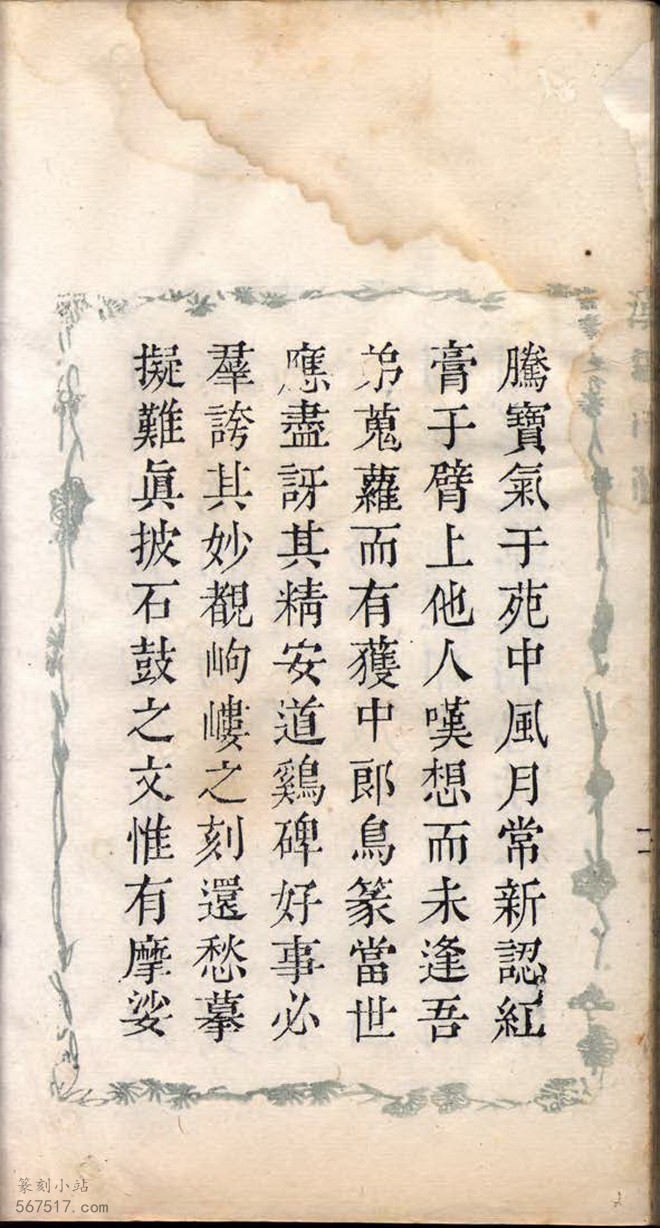 騰寶氣于苑中風月常新認紅
膏于臂上他人嘆想而未逢吾
弟蒐蘿而有獲中郎鳥篆當世
應盡訝其精安道鷄碑好事必
羣誇其妙覩岣嶁之刻還愁摹
擬難眞披石鼓之文惟有摩娑
篆刻小站
567517.com